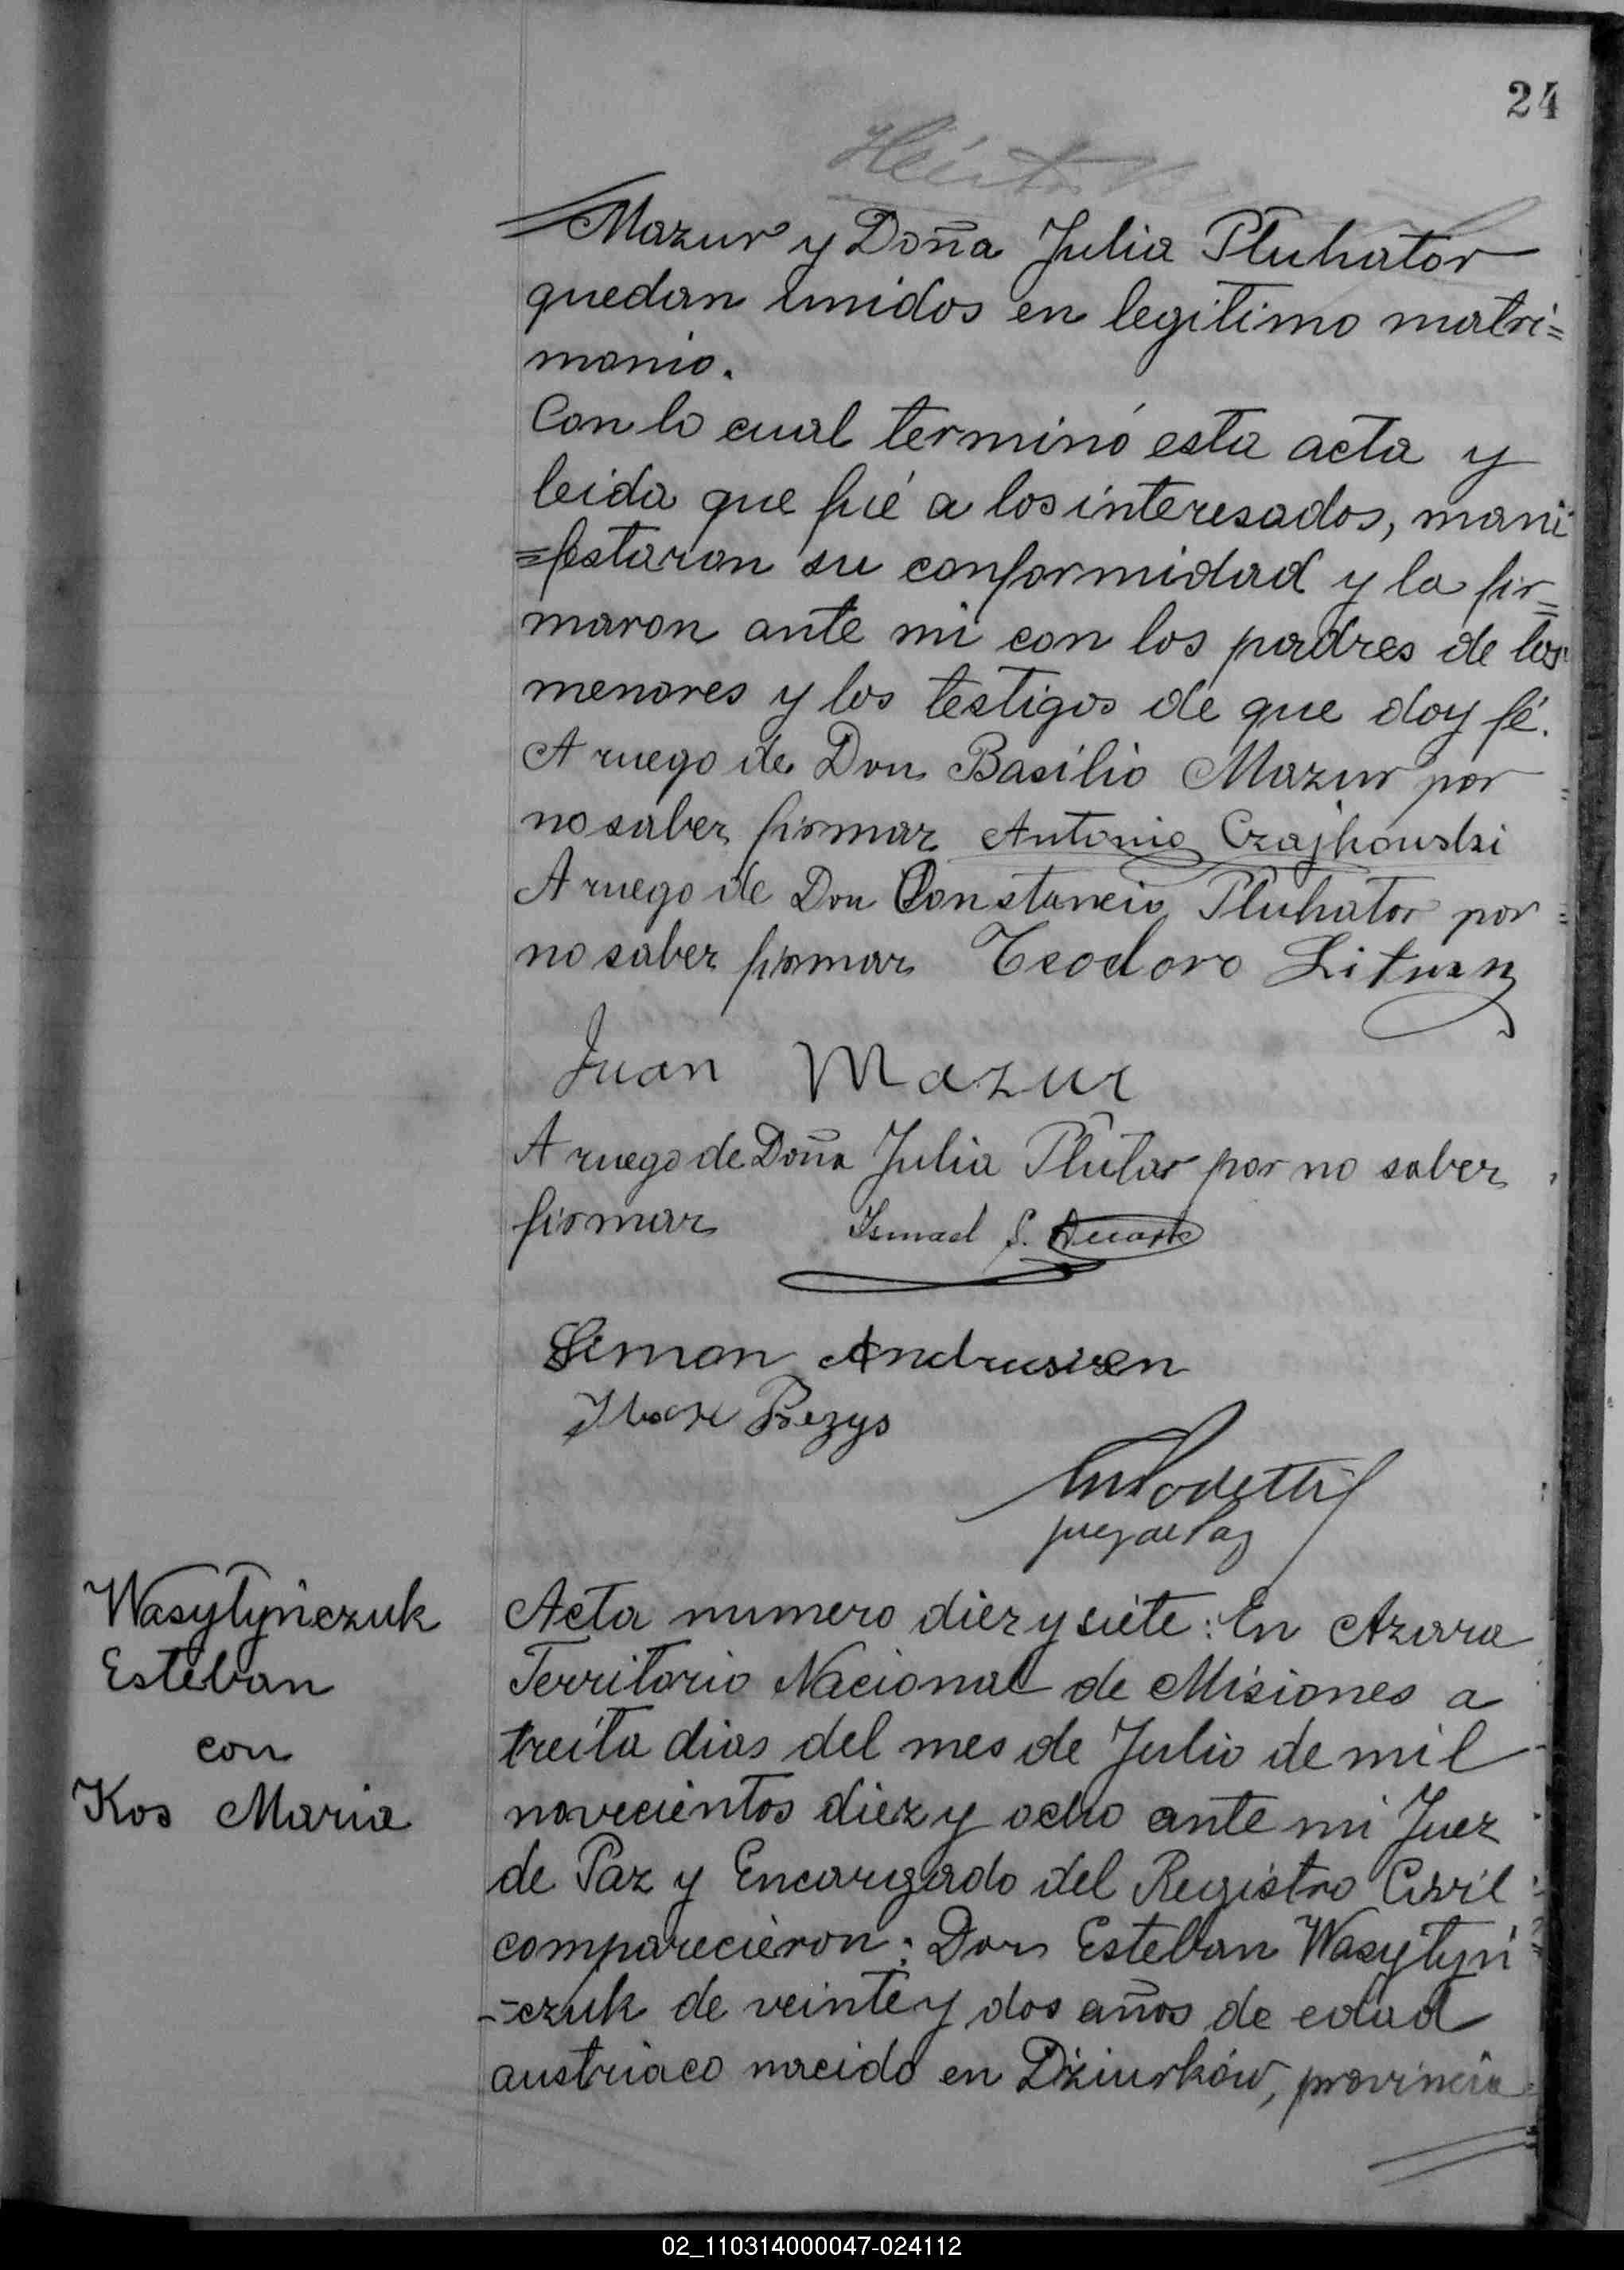 24
Mazur y Doña Julia Pluhator
quedan unidos en legitimo matri=
monio.
Con lo cual terminó esta acta y
leida que fué a los interesados, mani
=festaron su conformidad y la fir=
maron ante mi con los padres de los
menores y los testigos de que doy fé.
A ruego de Don Basilio Mazur por
no saber firmar Antonio Czajkowski
A ruego de Don Constancio Pluhator por
no saber firmar Teodoro Lituan
Juan Mazur
A ruego de Doña Julia Plutar por no saber
firmar Ismael S.
Simon Andrusizen
Bezys
Juez de Paz
Wasytyńczuk
Esteban
con
Kos Maria
Acta numero diez y siete: En Azara
Territorio Nacional de Misiones a
treita dias del mes de Julio de mil
novecientos diez y ocho ante mi Juez
de Paz y Encargado del Registro Civil
comparecieron: Don Esteban Wasytyń
=czuk de veinte y dos años de edad
austriaco nacido en Dżiurków, provincia
02_110314000047-024112